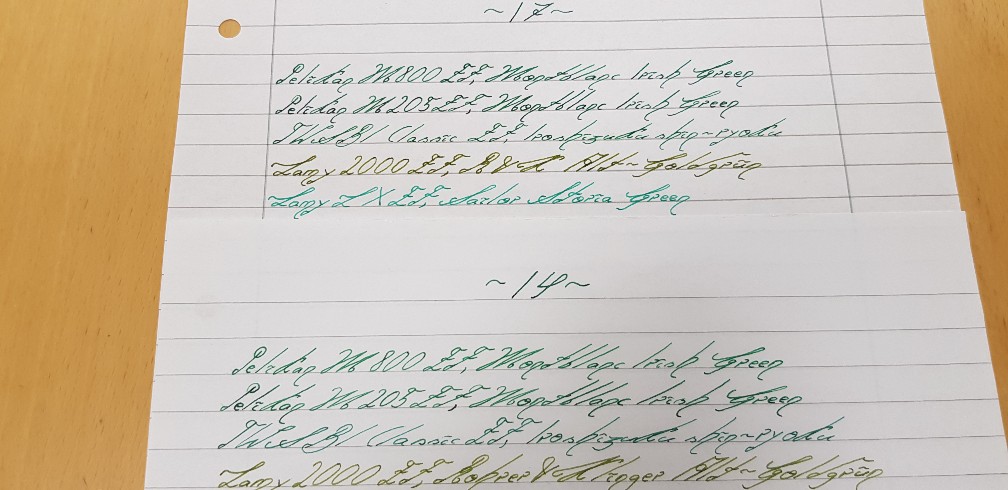 ~17~
Pelikan M800 EF, Montblanc Irish Green
Pelikan M205 EF, Montblanc Irish Green
TWSBI Classic EF, Iroshizuku shin-ryoku
Lamy 2000 EF, R&K Alt-Goldgrün
Lamy LX EF, Sailor Storia Green
~14~
Pelikan M800 EF, Montblanc Irish Green
Pelikan M205 EF, Montblanc Irish Green
TWSBI Classic EF, Iroshizuku shin-ryoku
Lamy 2000 EF, Rohrer & Klinger Alt-Goldgrün